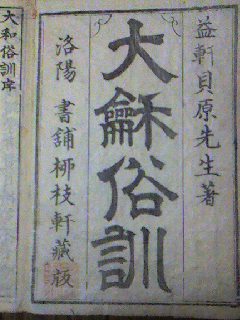 益軒貝原先生著
大龢俗訓
洛陽 書舗柳枝軒藏版
大和俗訓序